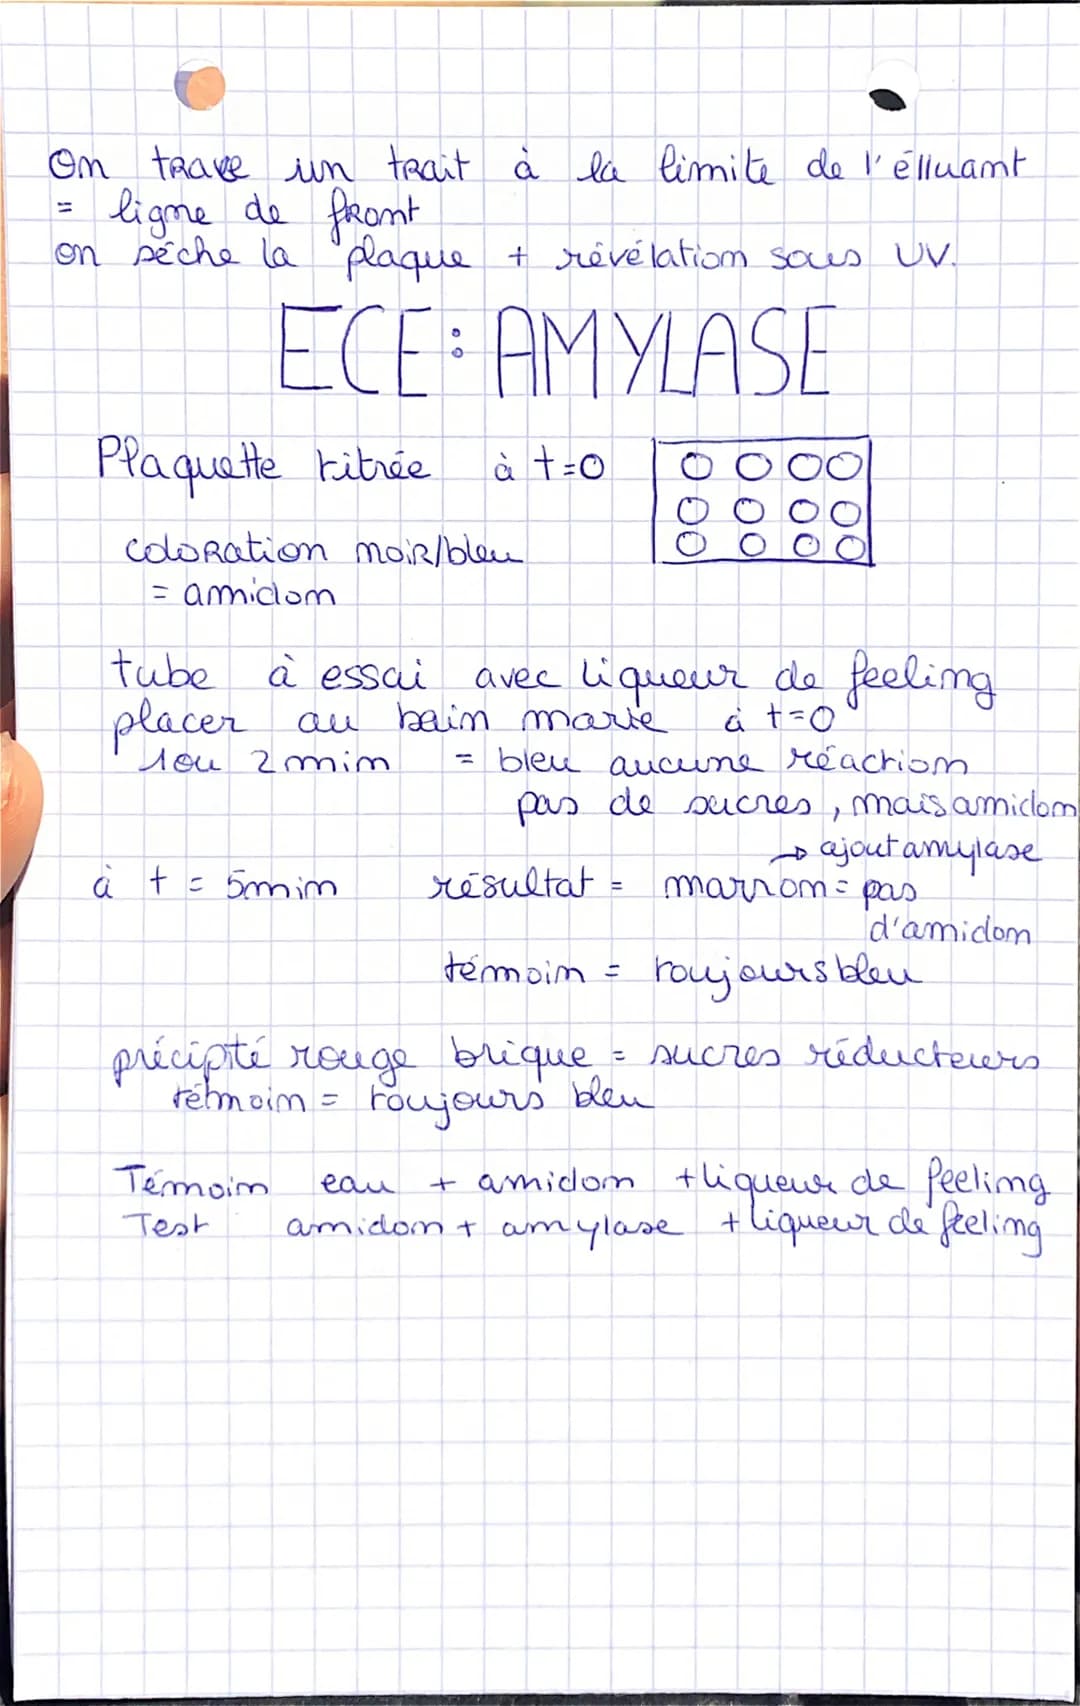 On trace un trait à la limite de l'élluant
= ligne de front
on sèche la plaque + révélation sous UV.
ECE: AMYLASE
Plaquette titrée à t=0
coloration noir/bleu
= amidon
tube à essai avec liqueur de feeling
placer au bain marie à t=0
1 ou 2 min = bleu aucune réaction
pas de sucres, mais amidon
→ ajout amylase
à t = 5min résultat = marron = pas
d'amidon
témoin = toujours bleu
précipté rouge brique = sucres réducteurs
témoin = toujours bleu
Témoin eau + amidon + liqueur de feeling
Test amidon + amylase + liqueur de feeling